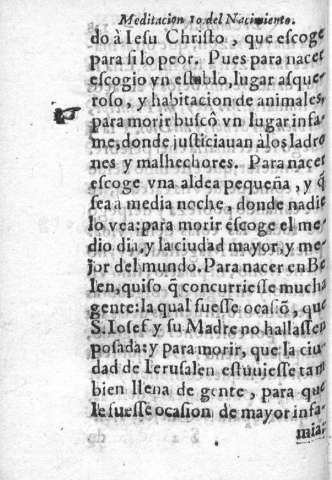 Meditacion 10. del Nacimiento.
do à Iesu Christo, que escoge
para si lo peor. Pues para nacer
escogio vn establo, lugar asque
roso, y habitacion de animales,
para morir buscô vn lugar infa
me, donde justiciauan àlos ladro
nes y malhechores. Para nacer
escoge vna aldea pequeña, y q̃
sea a media noche, donde nadie
lo vea: para morir escoge el me
dio dia, y la ciudad mayor, y me
jor del mundo. Para nacer en Be
len, quiso q̃ concurriesse mucha
gente: la qual fuesse ocasiõ, que
S. Iosef y su Madre no hallassen
posada: y para morir, que la ciu
dad de Ierusalen estuuiesse tam
bien llena de gente, para que
le fuesse ocasion de mayor infa-
mia,